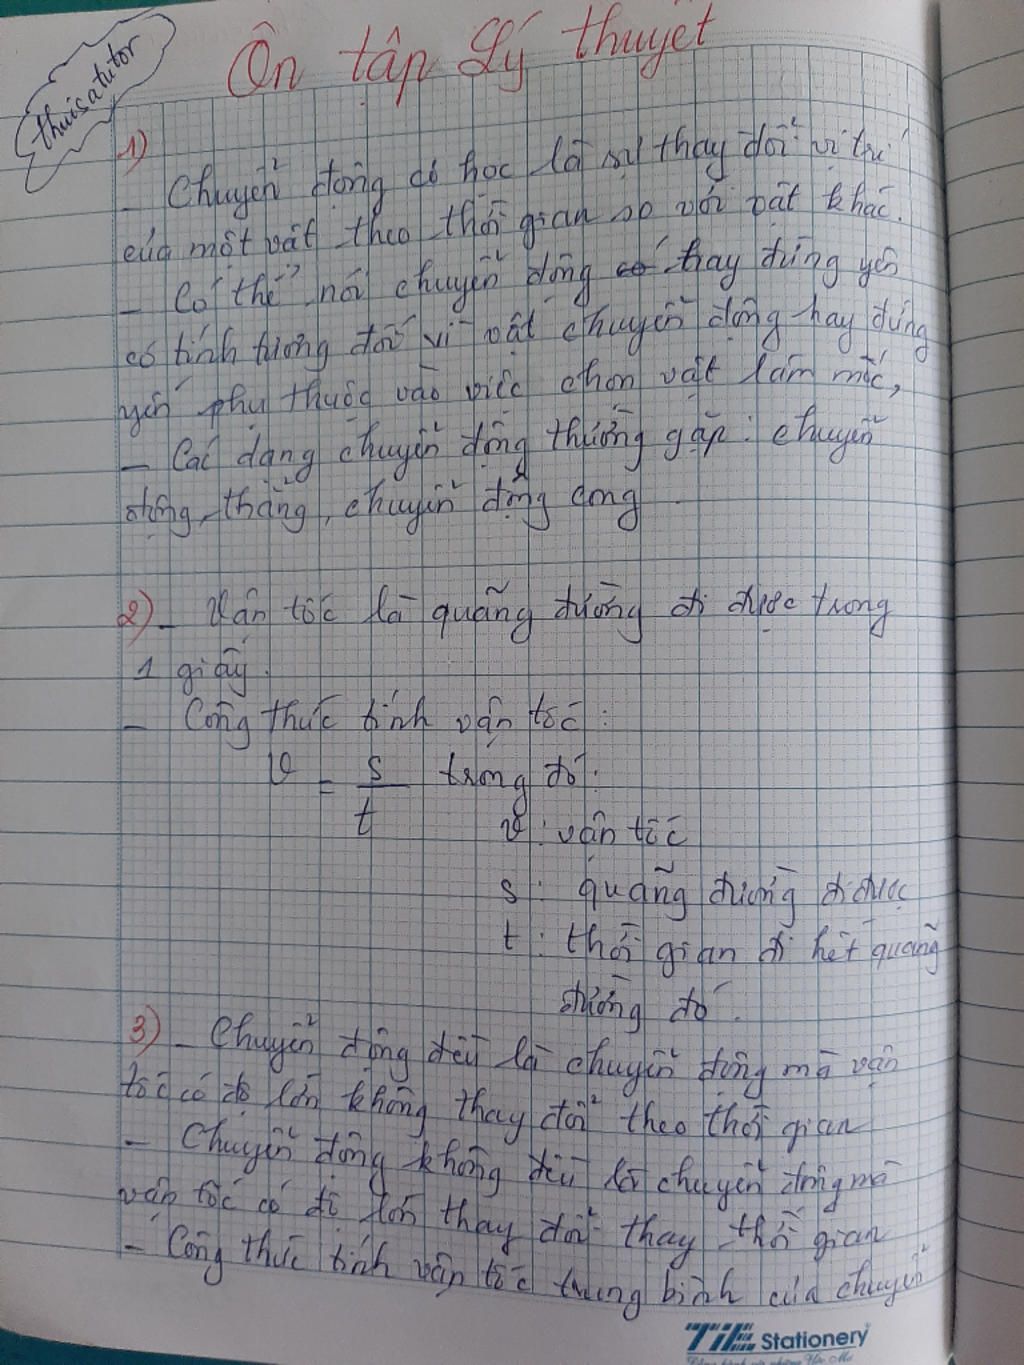 Ôn tập Lý thuyết
thuisatutor
1)
- Chuyển động cơ học là sự thay đổi vị trí
của một vật theo thời gian so với vật khác.
- Có thể nói chuyển động hay đứng yên
có tính tương đối vì vật chuyển động hay đứng
yên phụ thuộc vào việc chọn vật làm mốc,
- Các dạng chuyển động thường gặp : chuyển
động thẳng, chuyển động cong
2) - Vận tốc là quãng đường đi được trong
1 giây.
- Công thức tính vận tốc :
v = s/t trong đó:
v : vận tốc
s : quãng đường đi được
t : thời gian đi hết quãng
đường đó.
3) - Chuyển động đều là chuyển động mà vận
tốc có độ lớn không thay đổi theo thời gian
- Chuyển động không đều là chuyển động mà
vận tốc có độ lớn thay đổi thay thời gian
- Công thức tính vận tốc trung bình của chuyển
TiE Stationery